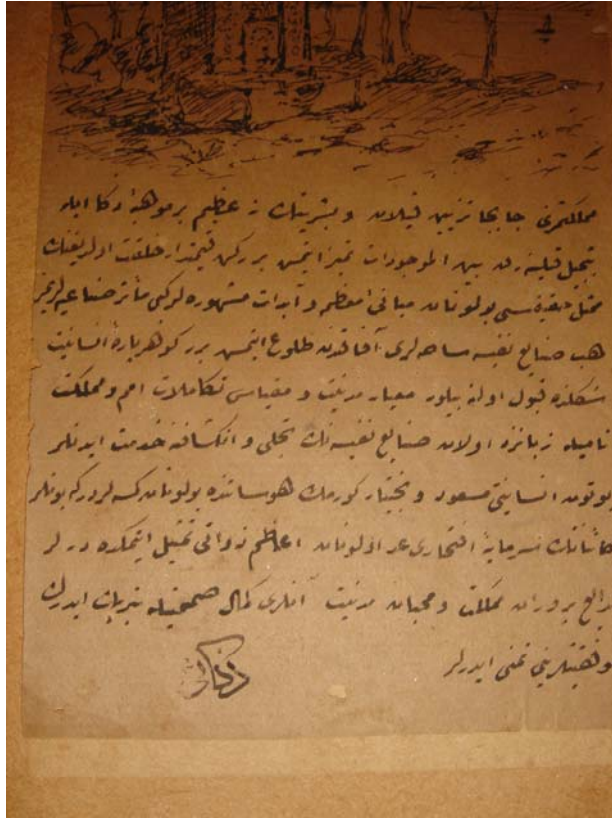 مملكتمزى جابجا تزيين قيلان و بشريتك عظيم بر موهبۀ ذكا ايله
تبجيل قيلنه رق بين الموجودات تميز ايتمش بر ركن قيمتدار خلقت اولديغنك
ممثل سى بولونان مبانئ معظم و آبدات مشهوره لركى مآثر صناعيه لرينز
هب صنايع نفيسه ساحه لرى آفاقندن طلوع ايتمش برر كوهرپاره انسانيت
شكلنده قبول اولنه بيلور معيار مدنيت و مقياس تكاملات امم و مملكت
ناميله زبانزد اولان صنايع نفيسه نك تجلى و انكشافنه خدمت ايدنلر
بوتون انسانيتى مسعود و بختيار كورمك هوسا تنده بولونان كسه لردركه بونلر
كائناتك سرمايۀ افتخارى عد اولونان اعاظم ذواتى تمثيل ايتمكده در لر
بدايع پروران مملكت و محبان مدنيت آنلرى كمال صميميتله تبريك ايدرك
موفقيتلرينى تمنى ايدرلر